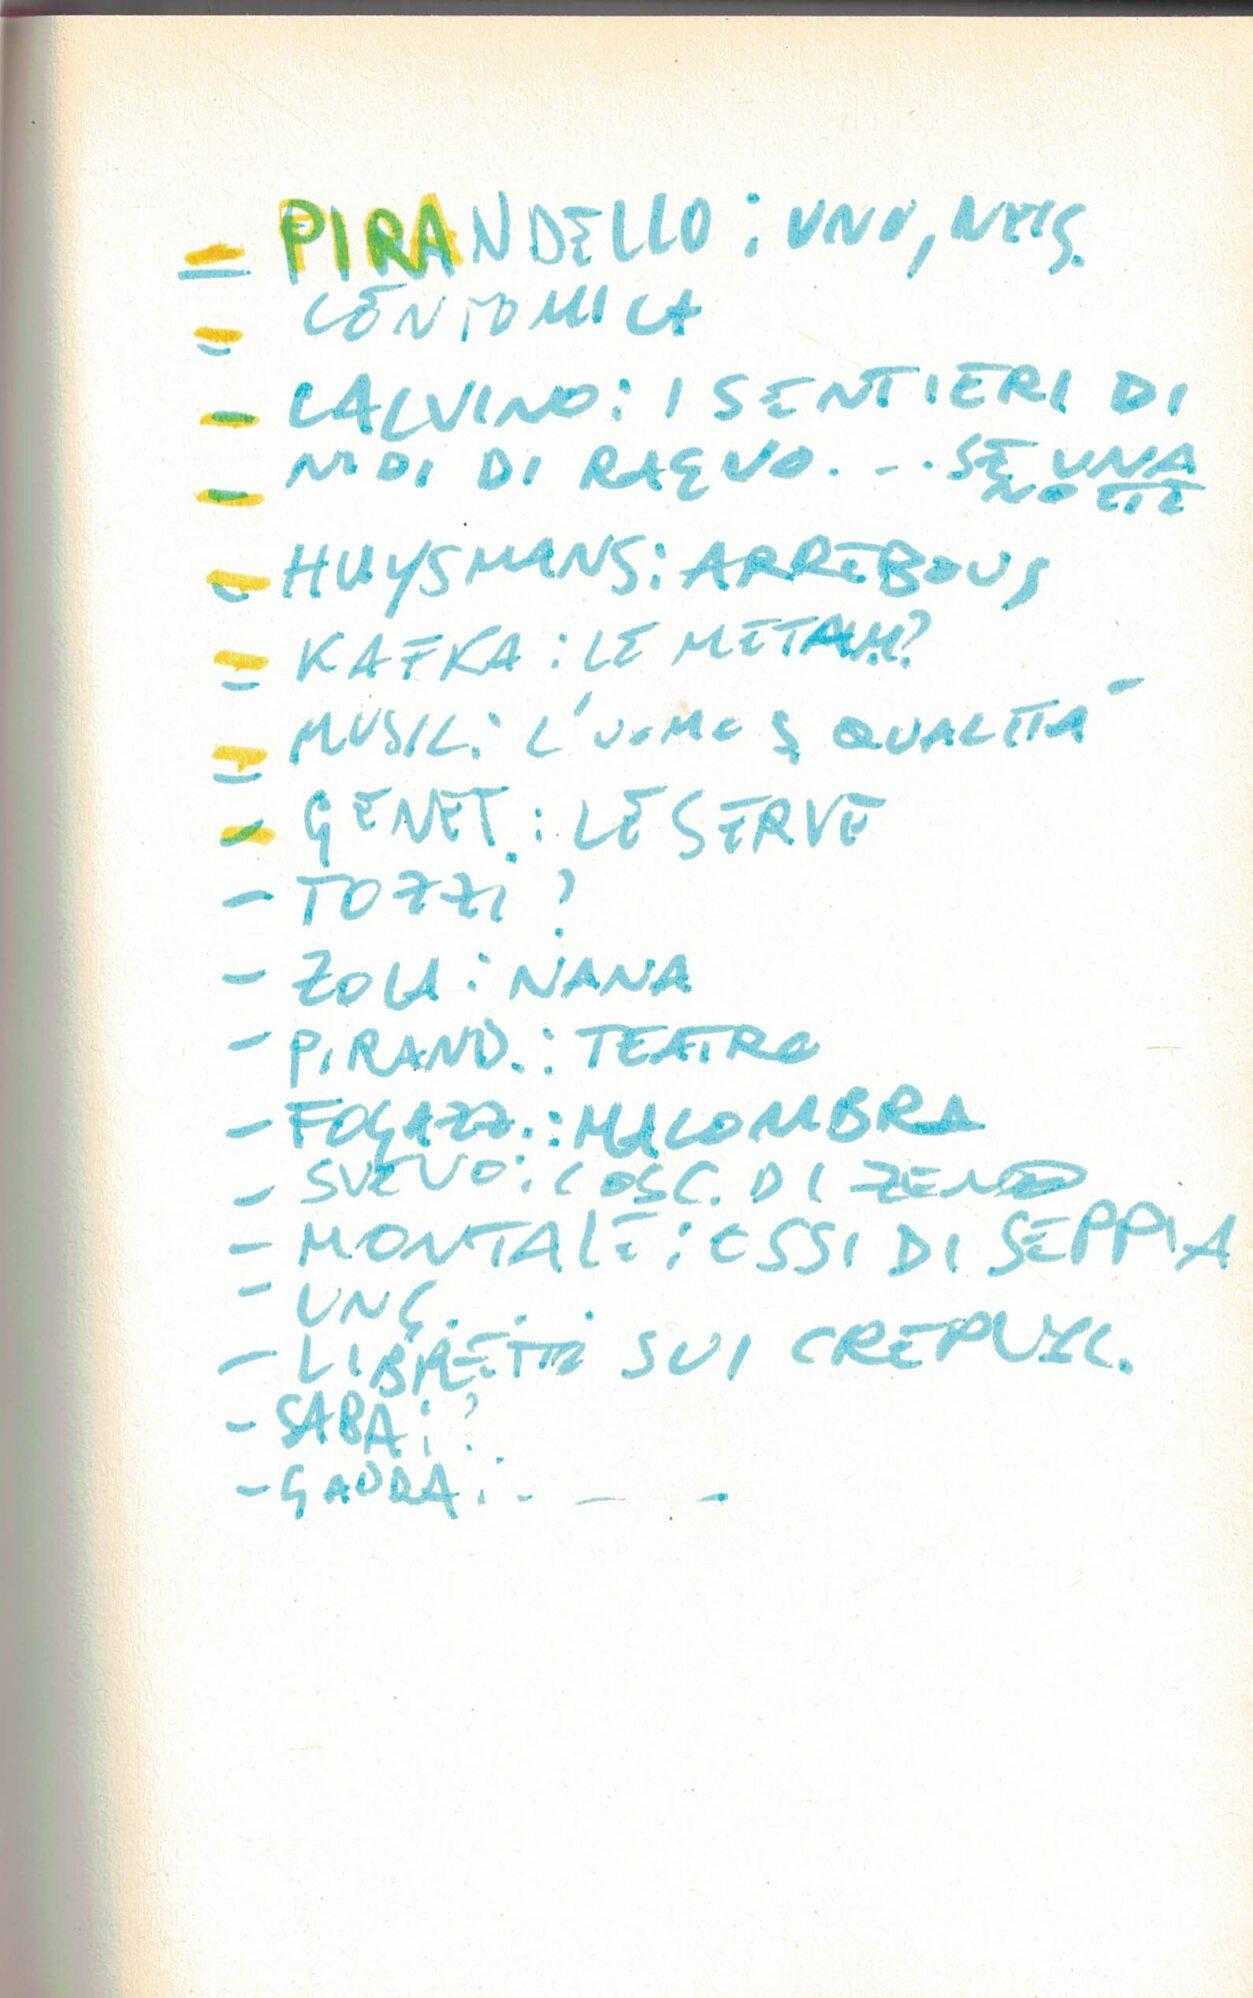 = PIRANDELLO : UNO, NESS.
= CENTOMILA
- CALVINO : I SENTIERI DI
- NIDI DI RAGNO. - - . SE UNA
NOTTE
- HUYSMANS : ARREBOUS
= KAFKA : LE METAM?
= MUSIL : L'UOMO S QUALITÀ
- GENET : LE SERVE
- TOZZI ?
- ZOLA : NANA
- PIRAND. : TEATRO
- FOGAZZ. : MALOMBRA
- SVEVO : COSC. DI ZENO
- MONTALE : OSSI DI SEPPIA
- UNG. . .
- LIBRETTO SUI CREPUSC.
- SABA : ?
- GADDA : - - -